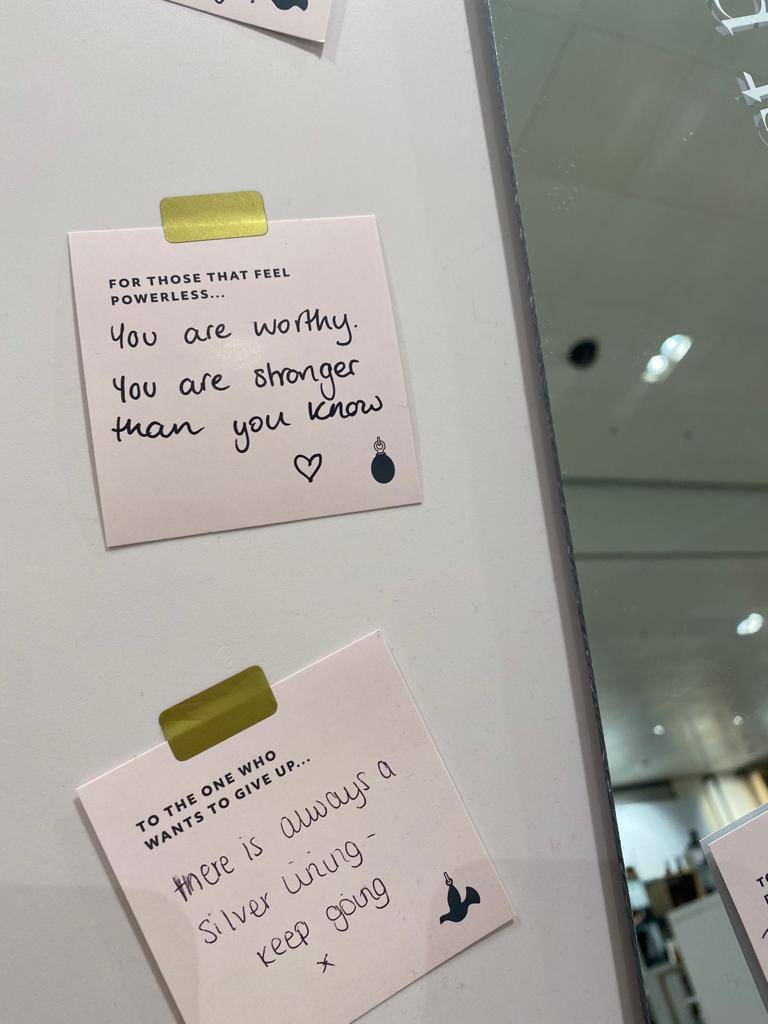 FOR THOSE THAT FEEL
POWERLESS...
You are worthy.
You are stronger
than you know
TO THE ONE WHO
WANTS TO GIVE UP...
there is always a
silver lining -
keep going
x